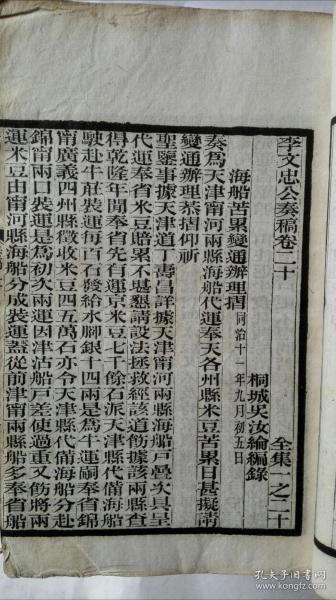 李文忠公奏稿卷二十
全集一之二十
桐城吳汝綸編錄
海船苦累變通辦理摺 同治十一年九月初五日
奏爲天津甯河兩縣海船代運奉天各州縣米豆苦累日甚擬請
變通辦理恭摺仰祈
聖鑒事據天津道丁壽昌詳據天津甯河兩縣海船戶疊次具呈
代運奉省米豆賠累不堪懇請設法拯救經該道飭據該兩縣查
得乾隆年閒奉省先有運京米豆七千餘石派天津縣代備海船
駛赴牛莊裝運每百石發給水腳銀十四兩是爲牛運嗣奉省錦
甯廣義四州縣徵收米豆四五萬石亦令天津縣代備海船分赴
錦甯兩口裝運是爲初次兩運因津沽船戶差使過重又飭將兩
運米豆由甯河縣海船分成裝運蓋從前津甯兩縣海船多奉省船
孔夫子旧书网